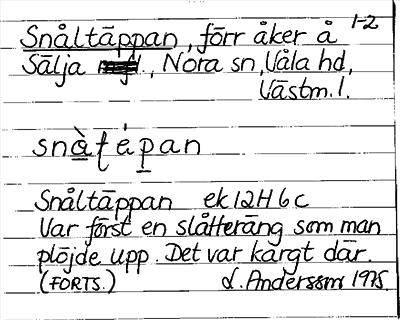 1-2
Snåltäppan, förr åker å
Sälja , Nora sn, Våla hd,
Västm. l.
snàtápan
Snåltäppan ek 12H 6c
Var först en slåtteräng som man
plöjde upp. Det var kargt där.
(FORTS.) d. Andersson 1975.